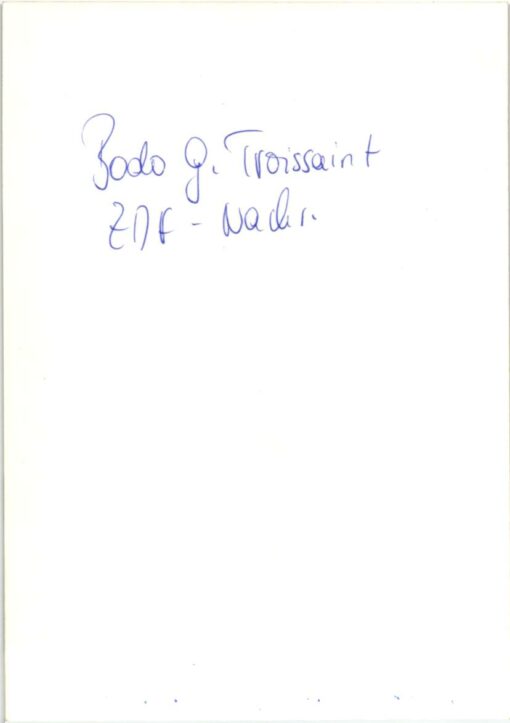 Bodo G. Troissaint
ZDF - Nachr.